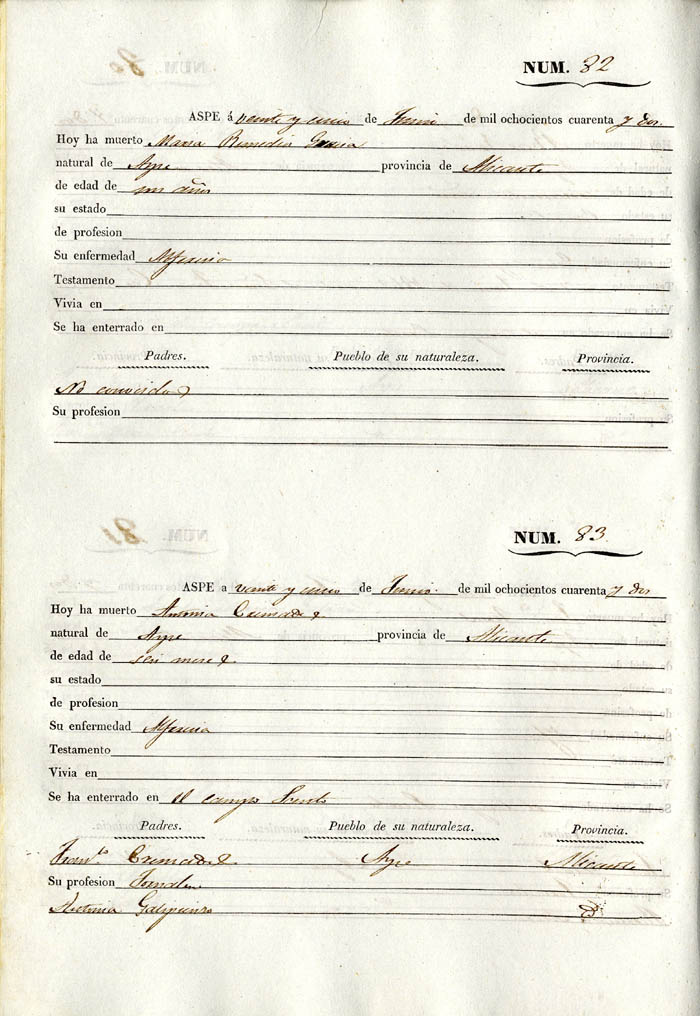 NUM. 82
ASPE á veinte y cinco de Junio de mil ochocientos cuarenta y dos.
Hoy ha muerto Maria Remedio Garcia
natural de Aspe provincia de Alicante
de edad de un año
su estado
de profesion
Su enfermedad Alferecia
Testamento
Vivia en
Se ha enterrado en
Padres. Pueblo de su naturaleza. Provincia.
No conocidos
Su profesion
NUM. 83
ASPE a veinte y cinco de Junio de mil ochocientos cuarenta y dos
Hoy ha muerto Antonia Cremades
natural de Aspe provincia de Alicante
de edad de seis meses
su estado
de profesion
Su enfermedad Alferecia
Testamento
Vivia en
Se ha enterrado en el campo Santo
Padres. Pueblo de su naturaleza. Provincia.
Franco. Cremades Aspe Alicante
Su profesion Jornalero
Galipienso